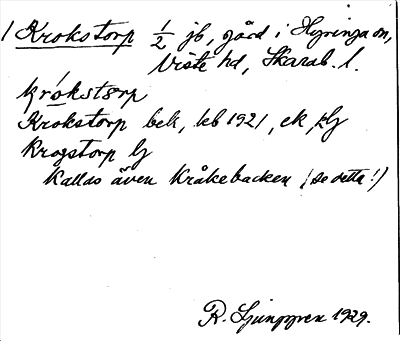 1 Krokstorp 1/2 jb, gård i Hyringa sn,
Viste hd, Skarab. l.
krókstorp
Krokstorp bek, kb 1921, ek, jb
Krogstorp lj
Kallas även Kråkebacken (se detta!)
R. Ljunggren 1929.